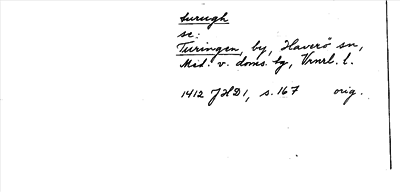 turugh
se:
Turingen, by, Haverö sn,
Med. v. doms. fg, Vrnrl. l.
1412 JHD 1, s. 167 orig.